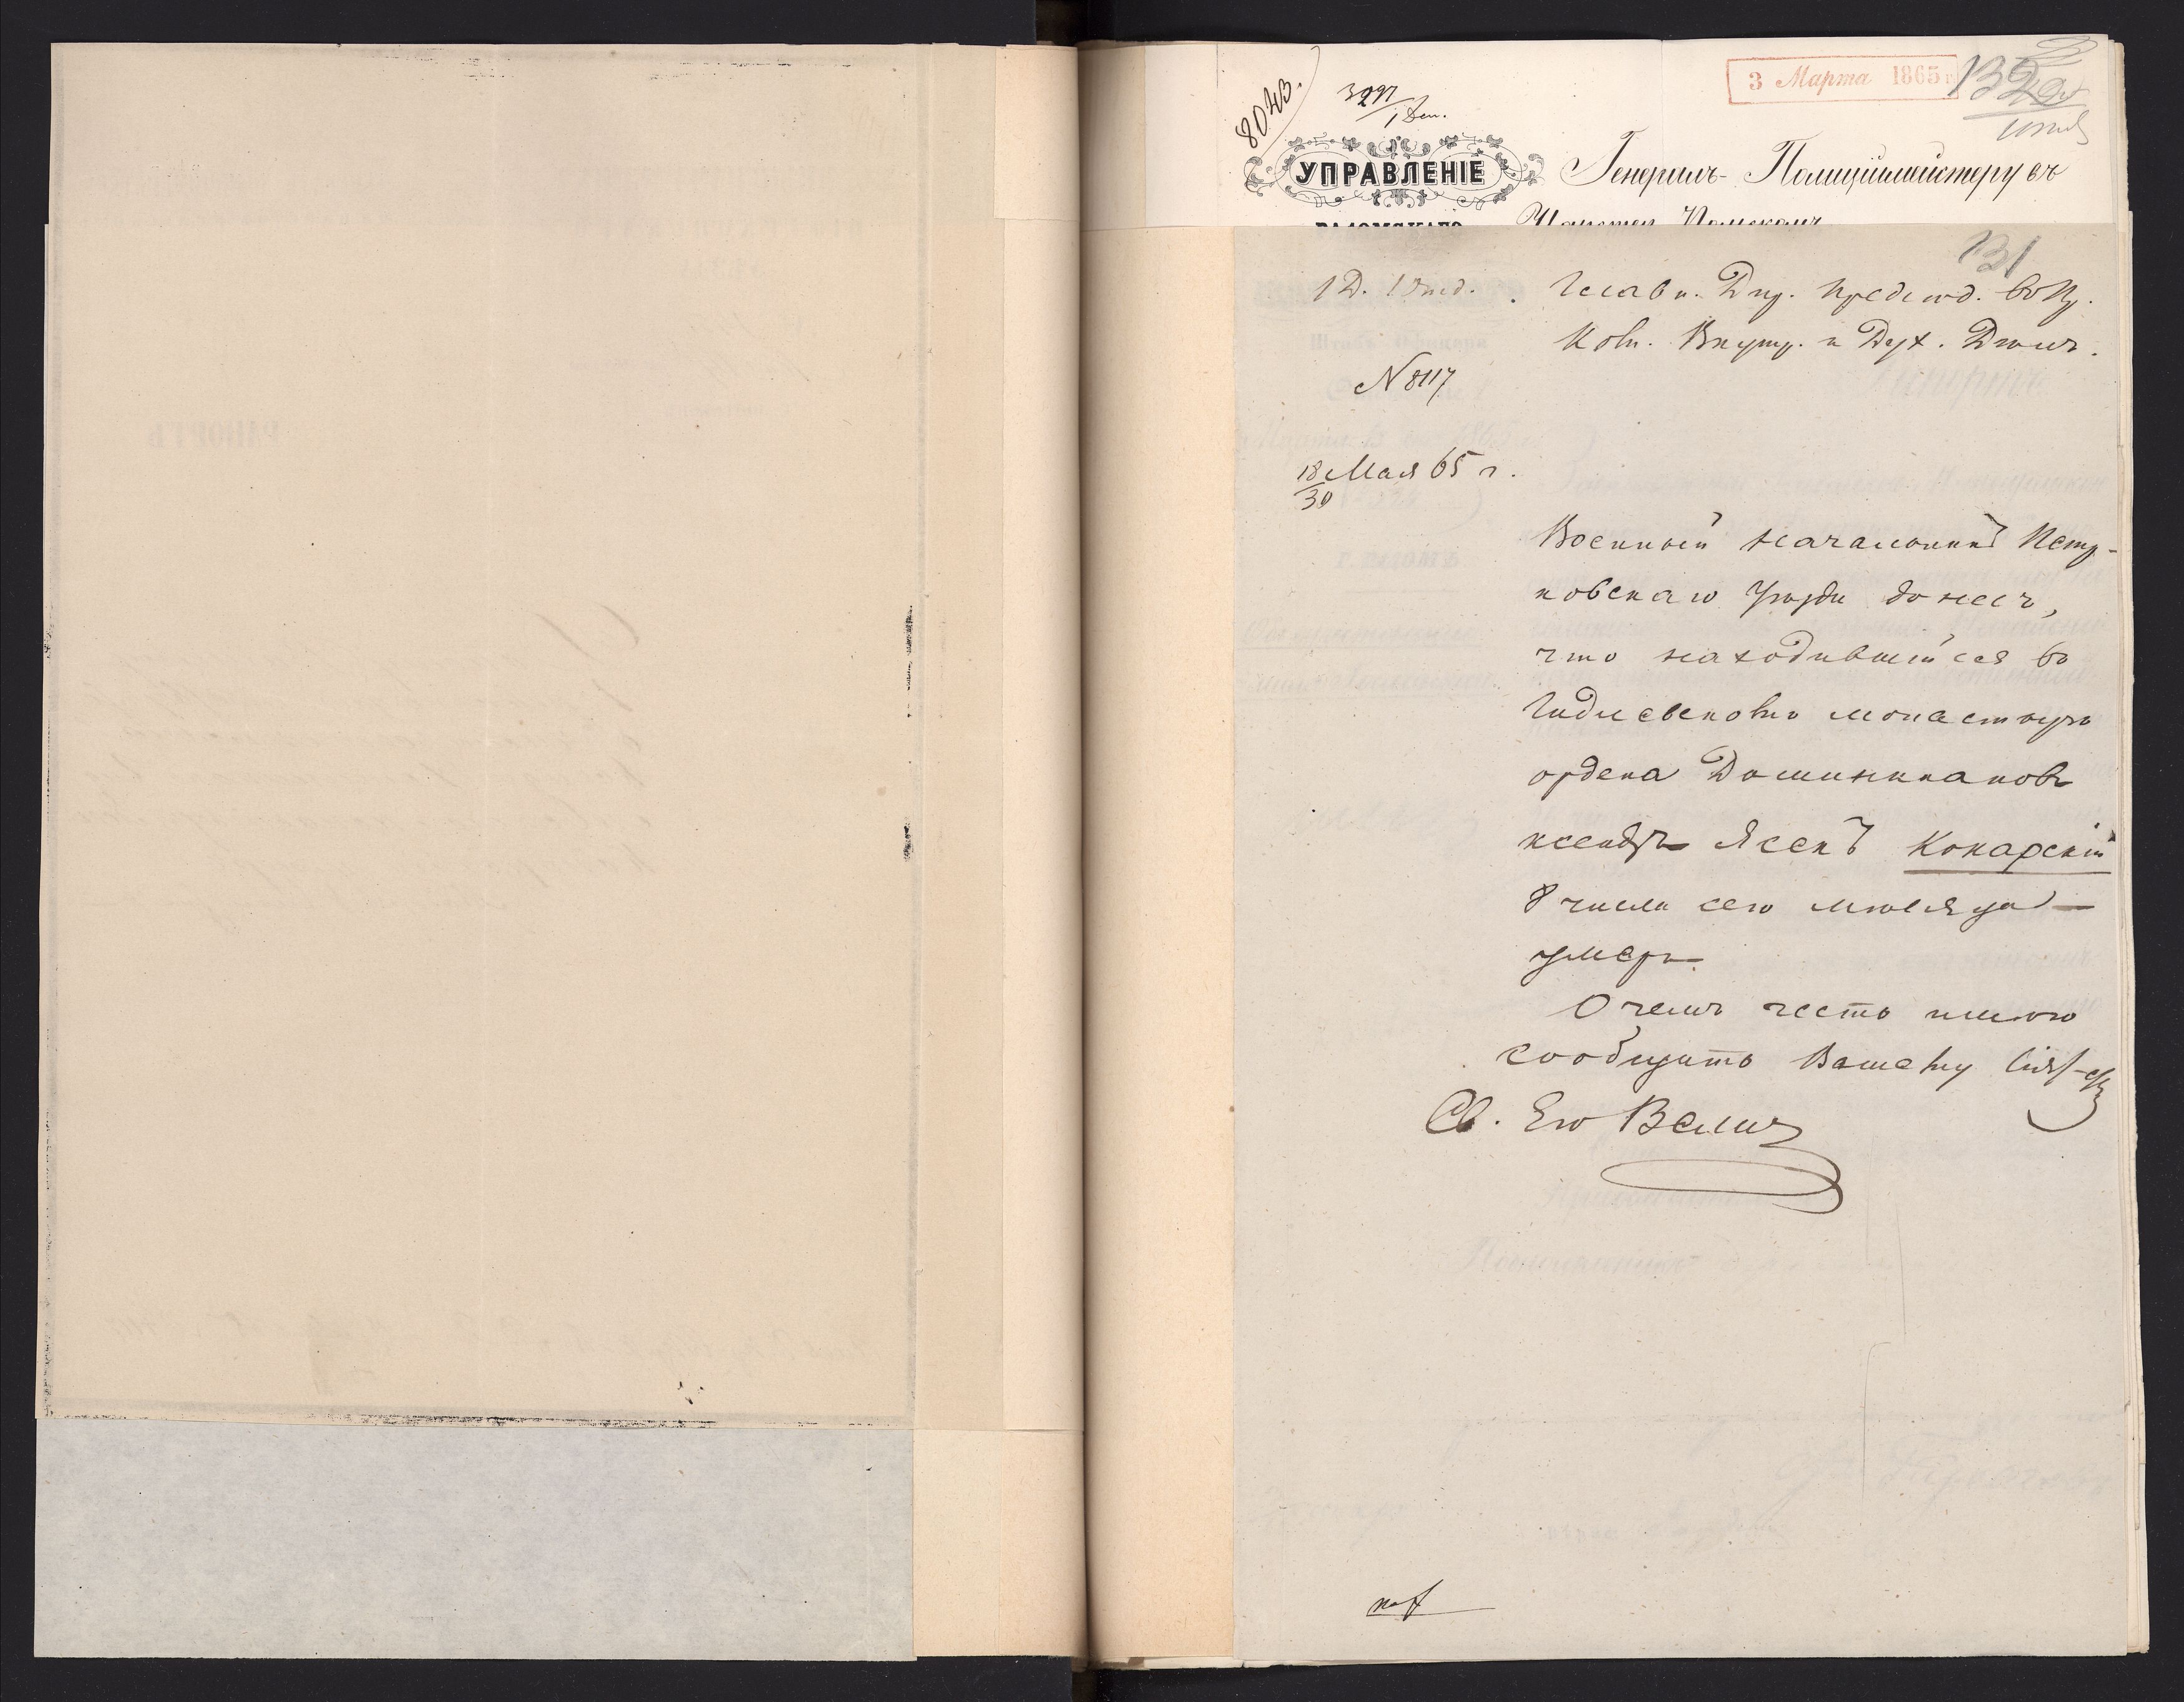 8043.
3297
1 Ден.
3 Марта 1865 г
132
УПРАВЛЕНІЕ
Генералъ-Полиціймейстеру въ
Царствѣ Польскомъ
131
1 Д. 1 Отд.
Главн. Дир. Предсѣд. въ Пр.
Ком. Внутр. и Дух. Дѣлъ.
N 8117
18/30 Мая 65 г.
Военный Начальникъ Петр-
ковскаго Уѣзда донесъ,
что находившійся въ
Гидлевскомъ монастырѣ
ордена Доминикановъ
ксендзъ Яцекъ Конарскій
8 числа сего мѣсяца —
умеръ.
О чемъ честь имѣю
сообщить Вашему Сіят-ву
Св. Его Велич